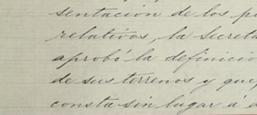 sentación de los p
relativos, la Secreta
aprobó la definició
de sus terrenos y que
consta sin lugar á d